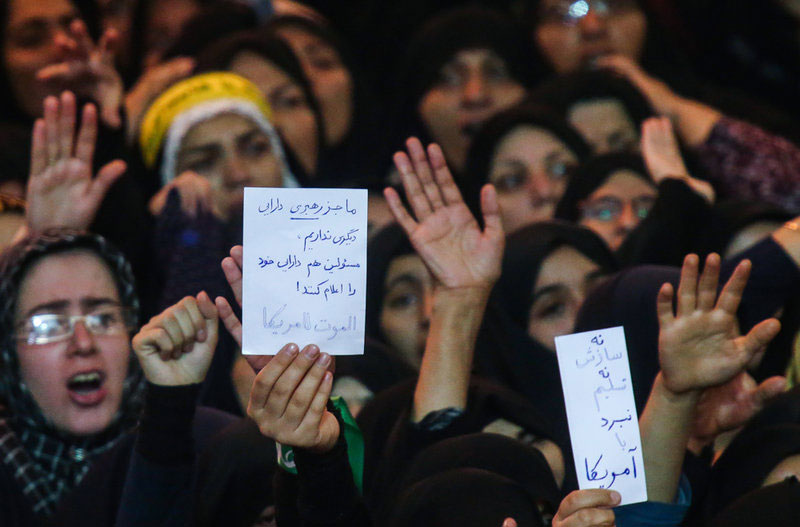 ما جز رهبری دارایی
دیگری نداریم،
مسئولین هم دارایی خود
را اعلام کنند!
الموت لامریکا
نه
سازش
نه
تسلیم
نبرد
با
آمریکا